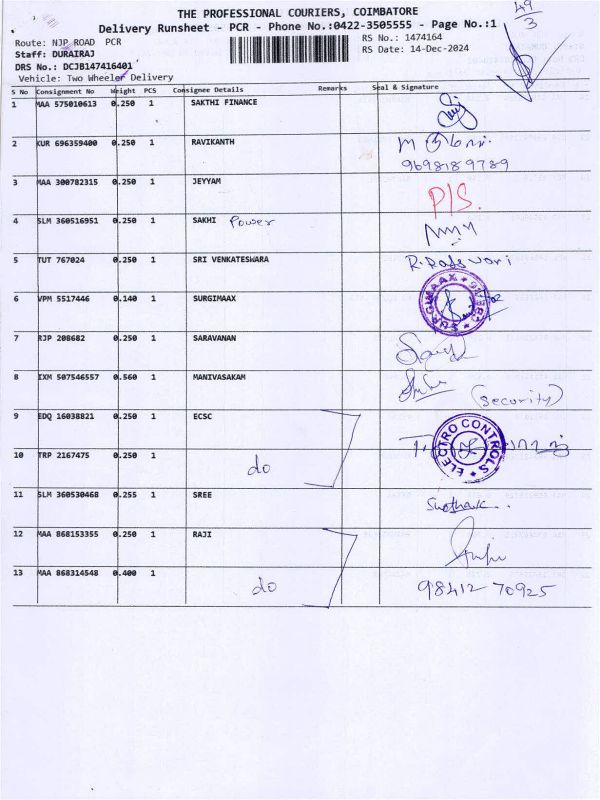 THE PROFESSIONAL COURIERS, COIMBATORE
Delivery Runsheet - PCR - Phone No.:0422-3505555 - Page No.:1
49/3
Route: NJP ROAD PCR
RS No.: 1474164
Staff: DURAIRAJ
RS Date: 14-Dec-2024
DRS No.: DCJB147416401
Vehicle: Two Wheeler Delivery
S No Consignment No Weight PCS Consignee Details Remarks Seal & Signature
1 MAA 575010613 0.250 1 SAKTHI FINANCE
2 KUR 696359400 0.250 1 RAVIKANTH
9698189789
3 MAA 300782315 0.250 1 JEYYAM P/S.
4 SLM 360516951 0.250 1 SAKHI Power
5 TUT 767024 0.250 1 SRI VENKATESWARA
6 VPM 5517446 0.140 1 SURGIMAAX SURGIMAAX
7 RJP 208682 0.250 1 SARAVANAN
8 IXM 507546557 0.560 1 MANIVASAKAM (security)
9 EDQ 16038821 0.250 1 ECSC ELECTRO CONTROLS
10 TRP 2167475 0.250 1 do
11 SLM 360530468 0.255 1 SREE
12 MAA 868153355 0.250 1 RAJI
13 MAA 868314548 0.400 1 do 98412 70925